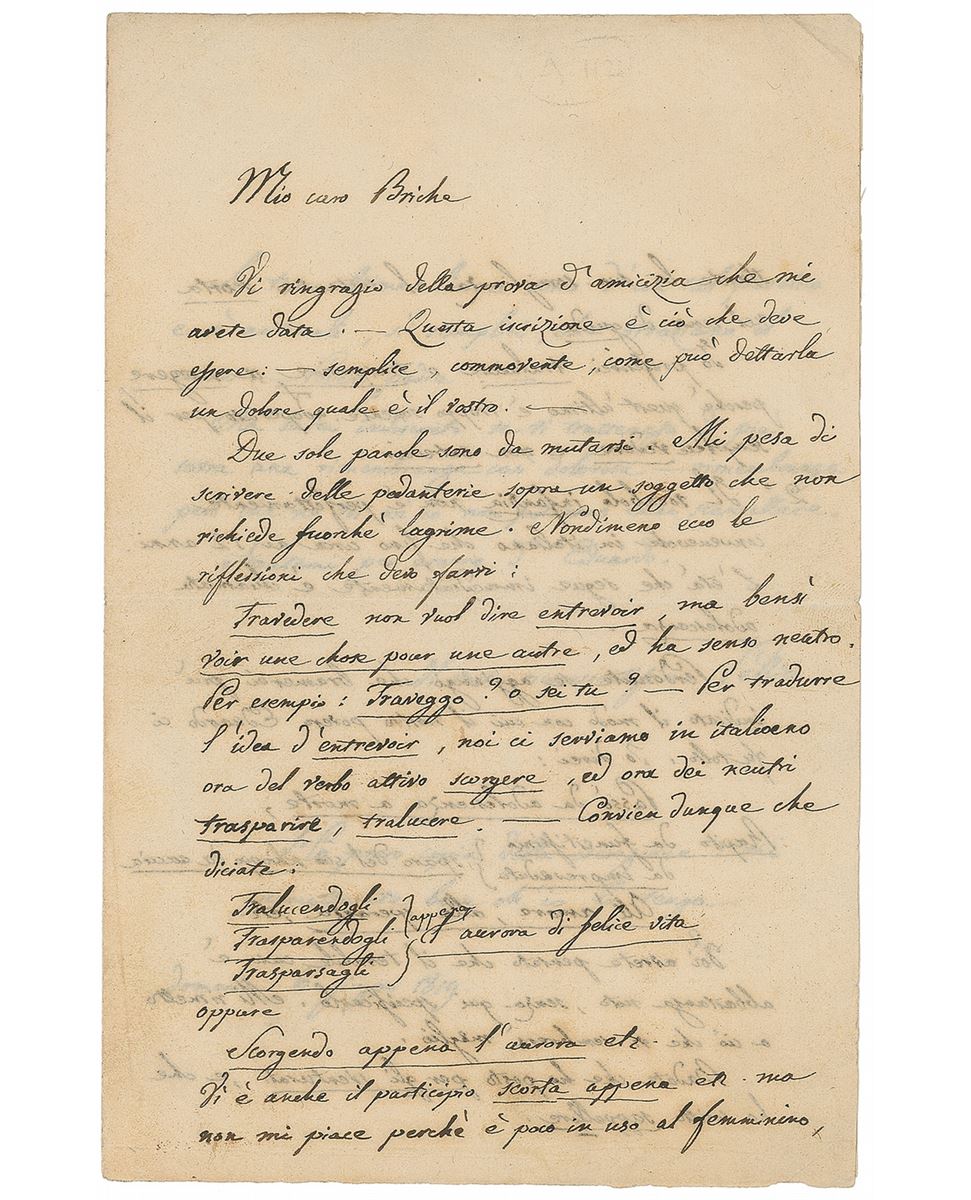 Mio caro Briche
Vi ringrazio della prova d'amicizia che mi
avete data. — Questa iscrizione è ciò che deve
essere: — semplice, commovente, come può dettarla
un dolore quale è il vostro. —
Due sole parole sono da mutarsi. Mi pesa di
scrivere delle pedanterie sopra un soggetto che non
richiede fuorchè lagrime. Nondimeno ecco le
riflessioni che devo farvi:
Travedere non vuol dire entrevoir, ma bensì
voir une chose pour une autre, ed ha senso neutro.
Per esempio: Traveggo? o sei tu? — Per tradurre
l'idea d'entrevoir, noi ci serviamo in italiano
ora del verbo attivo scorgere, ed ora dei neutri
trasparire, tralucere. — Convien dunque che
diciate:
Tralucendogli
Trasparendogli } appena l'aurora di felice vita
Trasparsagli
oppure
Scorgendo appena l'aurora etc.
Vi è anche il participio scorta appena etc. ma
non mi piace perchè è poco in uso al femminino,